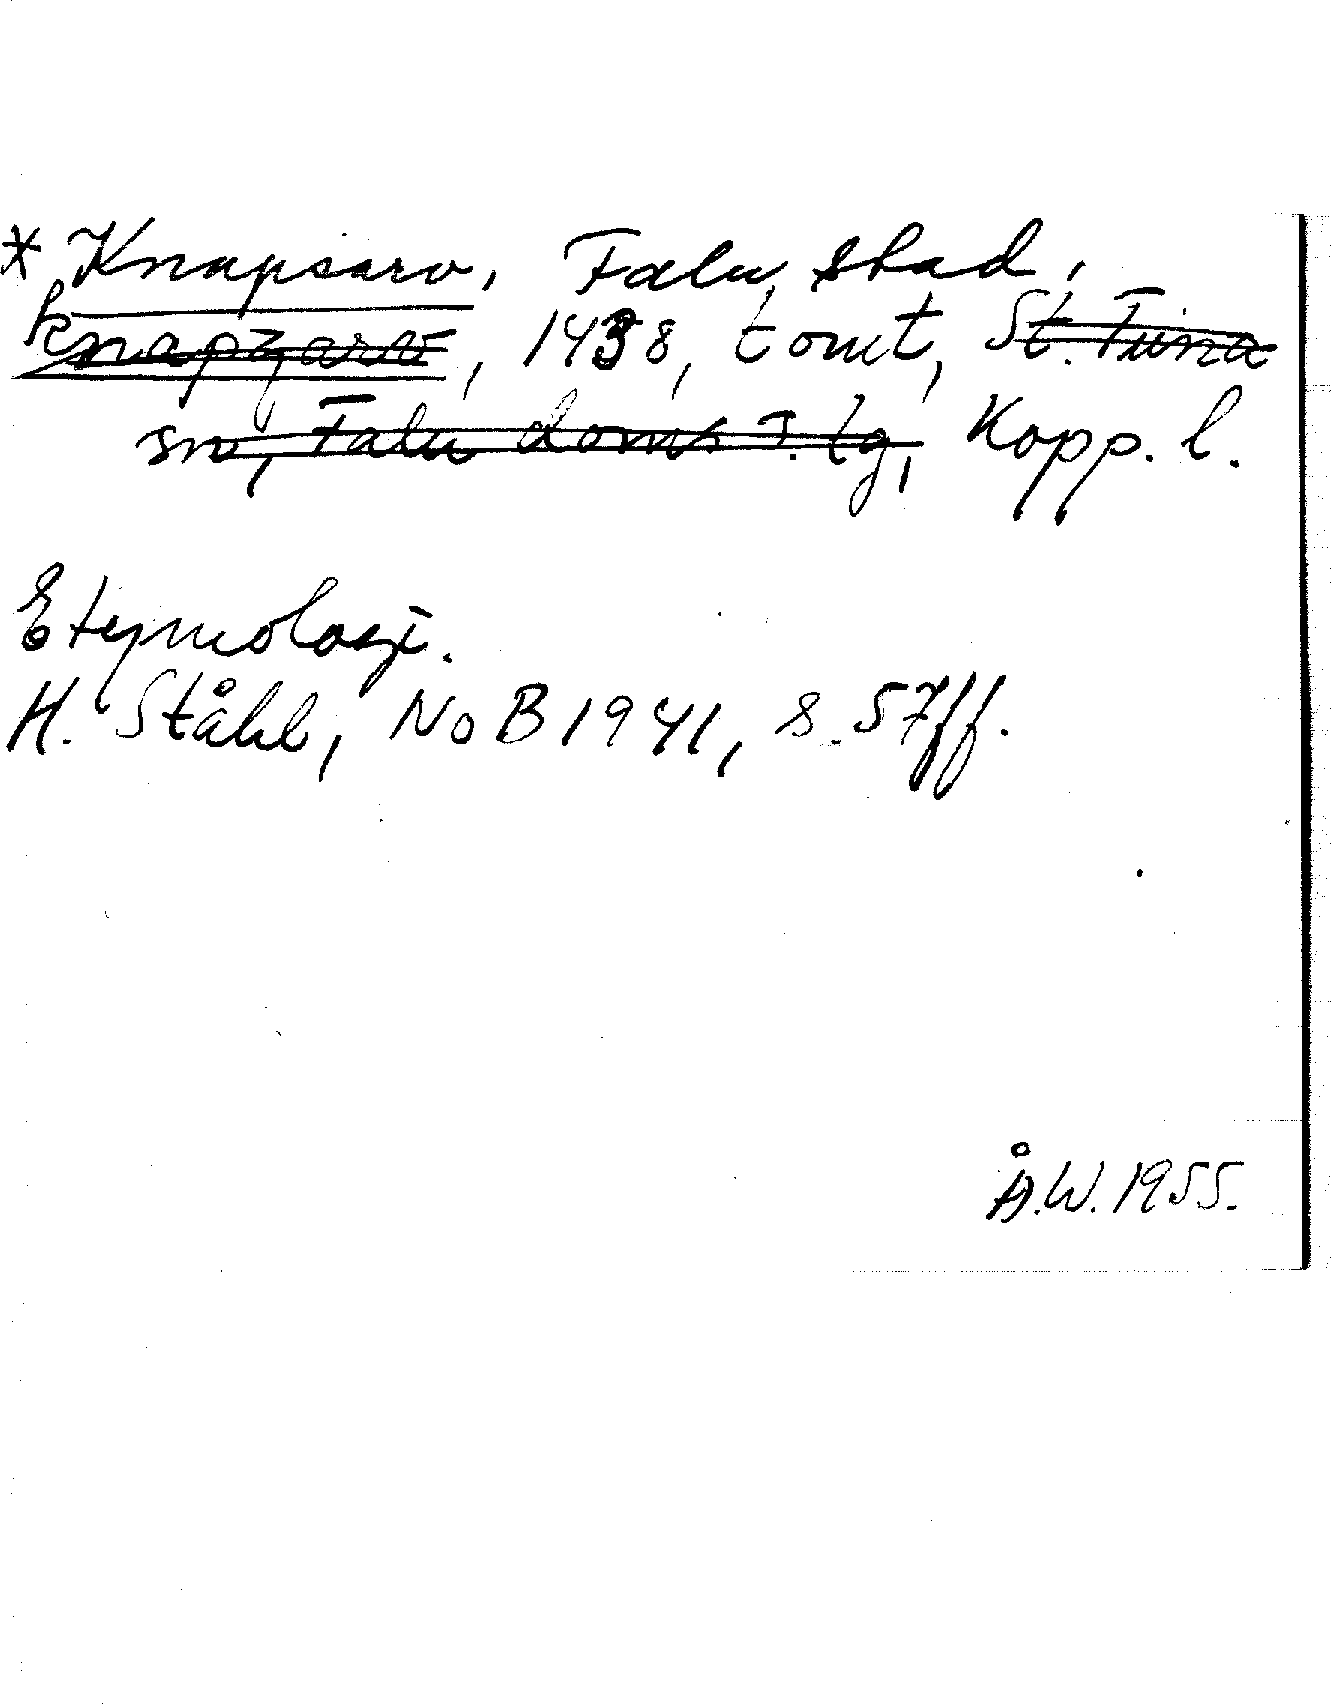 * Knapsarv, Falu stad,
knapzarve, 1438, tomt, St. Tuna
sn, Falu doms. tlg, Kopp. l.
Etymologi.
H. Ståhl, NoB 1941, s. 57ff.
Å.W. 1955.